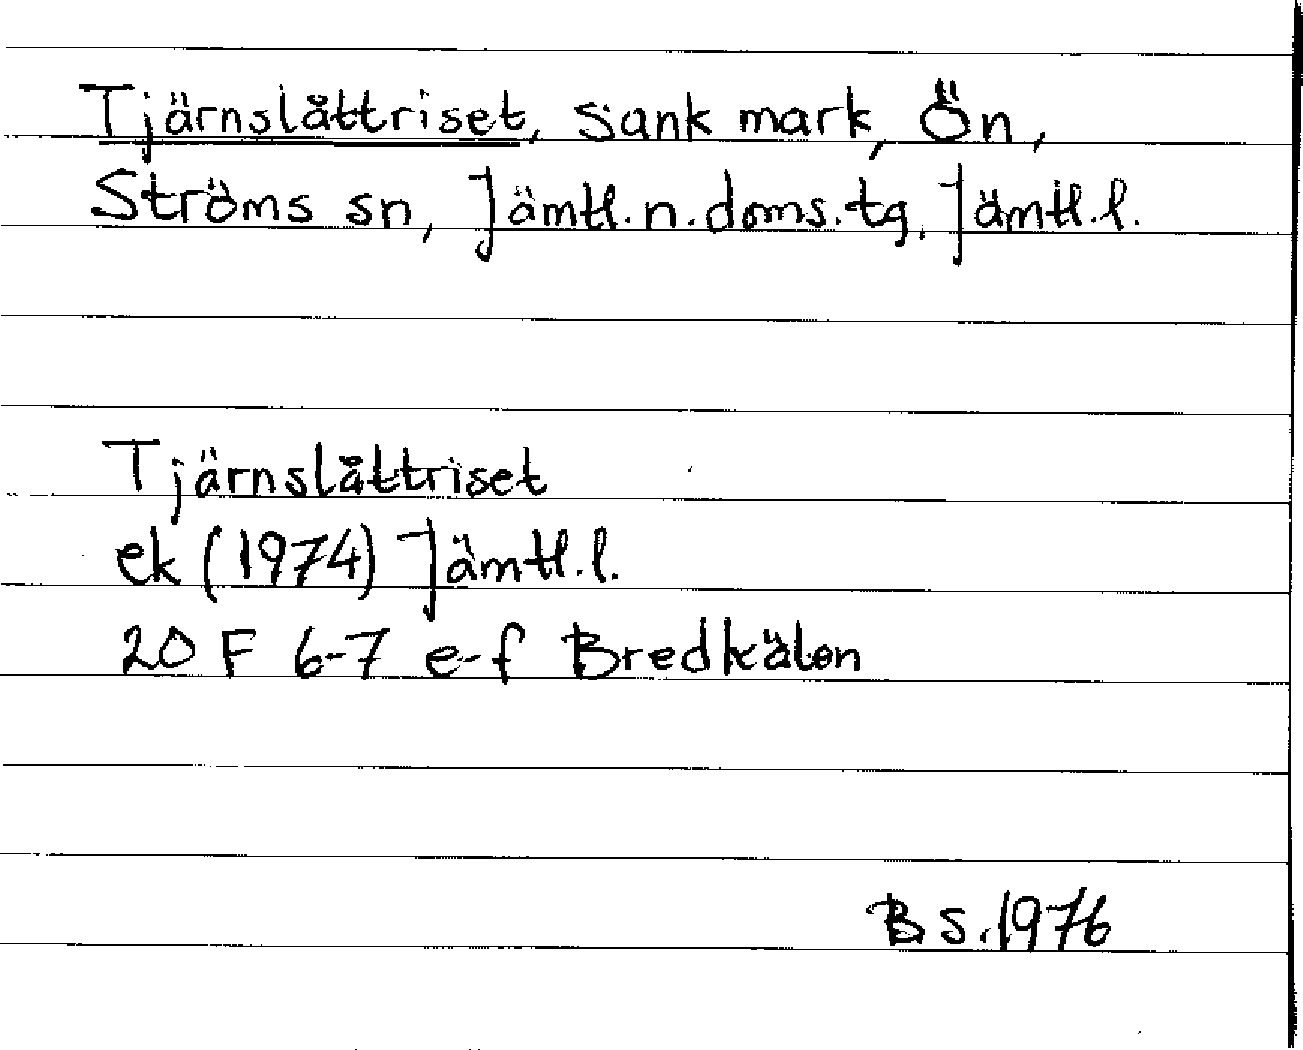 Tjärnslåttriset, sank mark, Ön,
Ströms sn, Jämtl. n. doms. tg. Jämtl. l.
Tjärnslåttriset
ek (1974) Jämtl. l.
20 F 6-7 e-f Bredkälen
B S. 1976